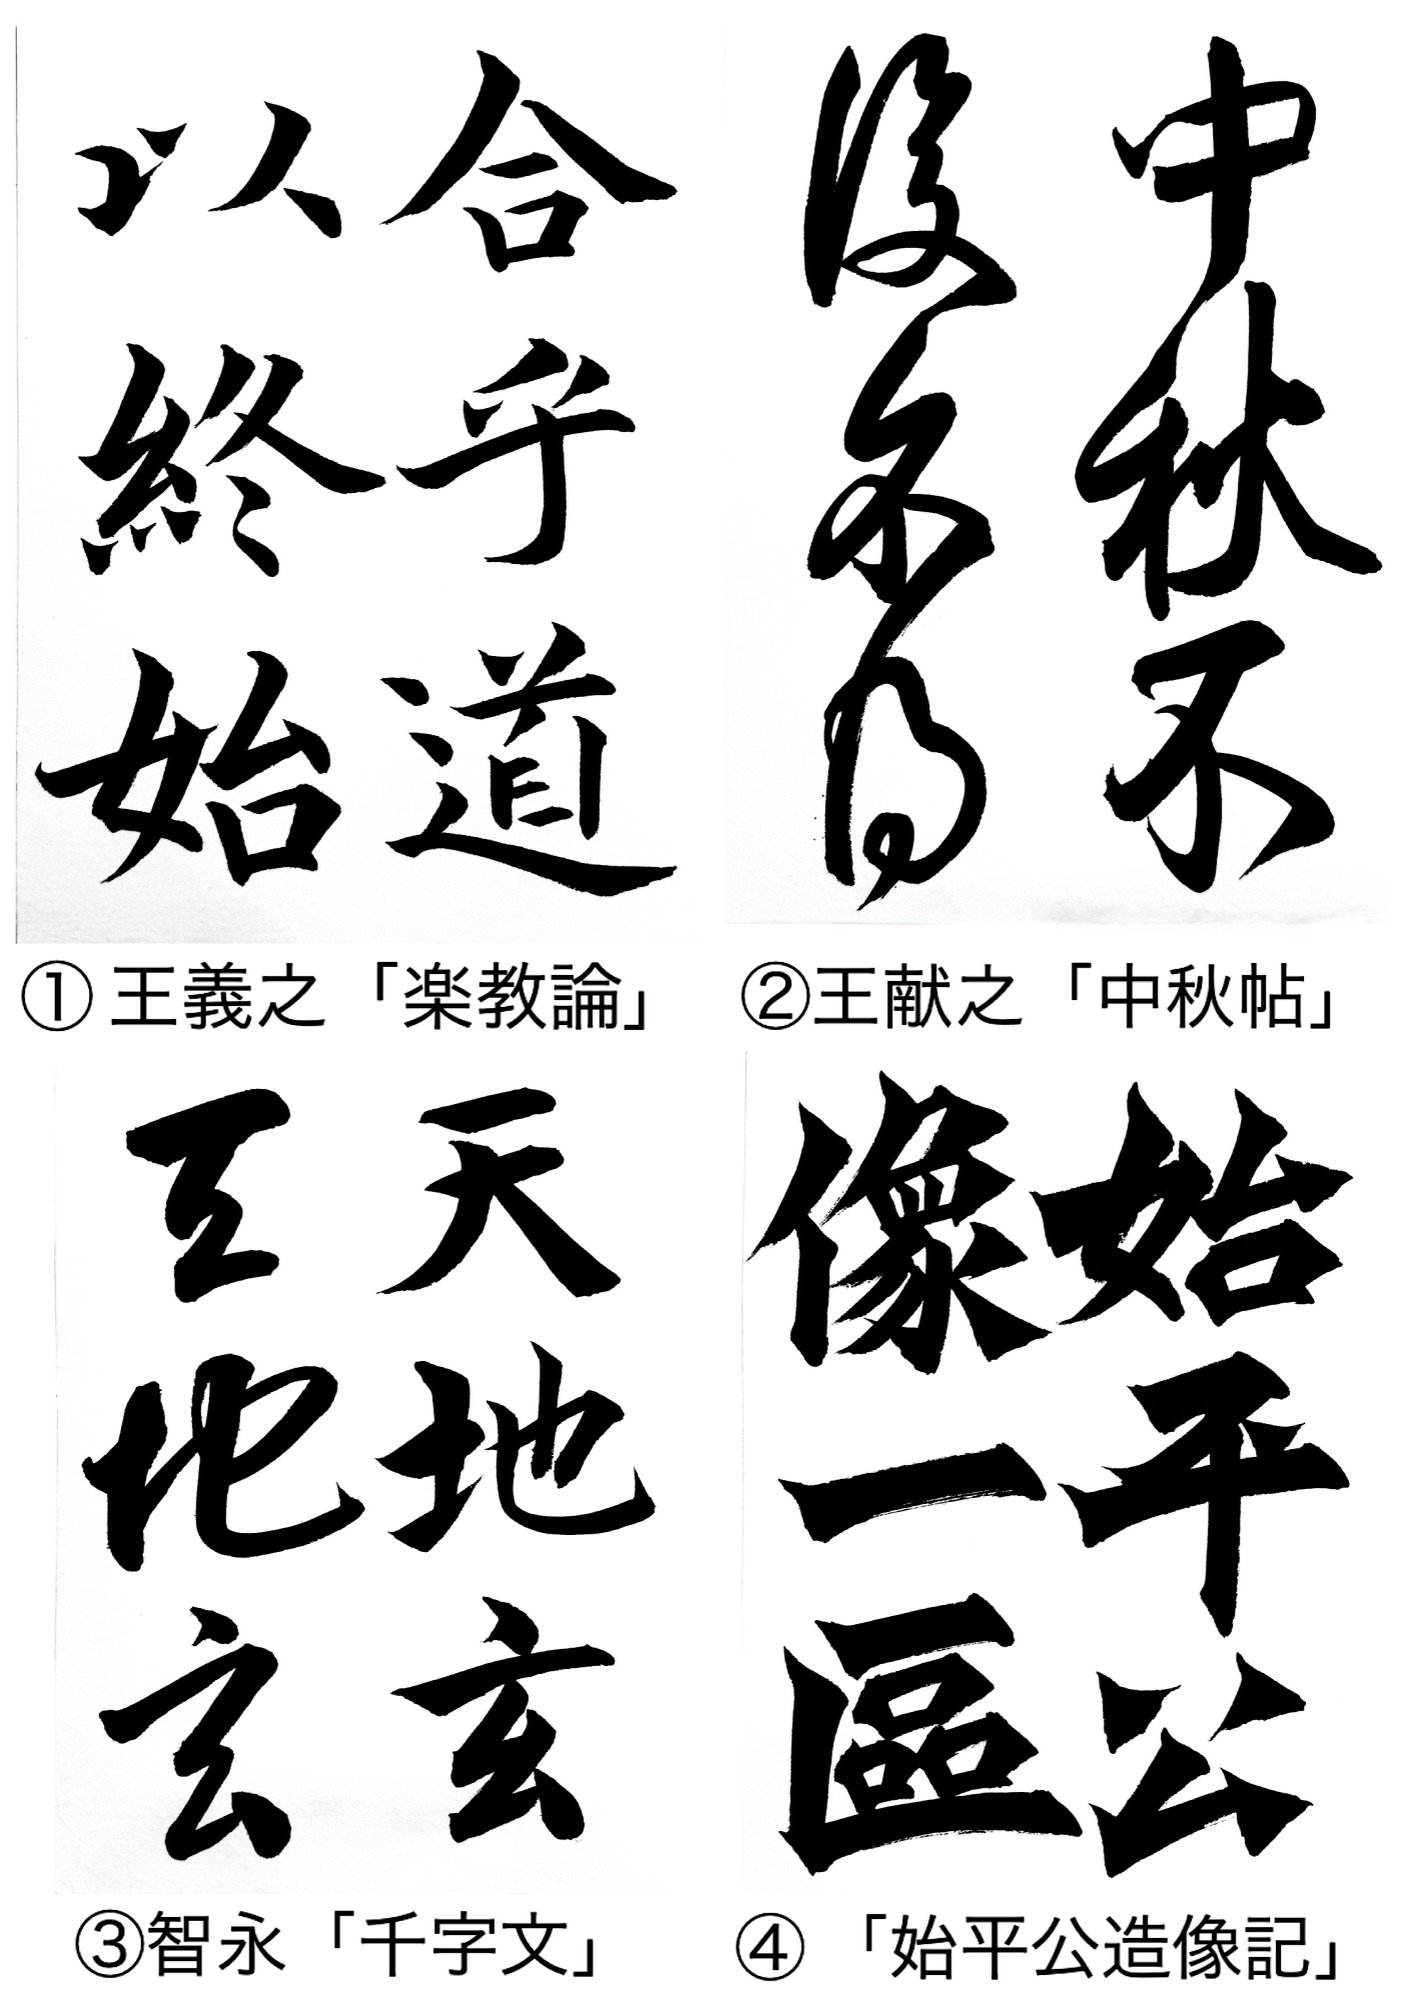 合乎道
以終始
① 王義之「楽教論」
中秋不
復不得
②王献之「中秋帖」
天地玄
天地玄
③智永「千字文」
始平公
像一區
④「始平公造像記」